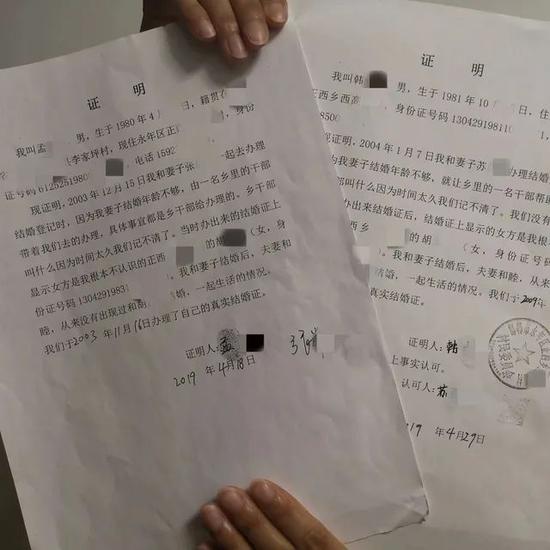 证 明
我叫孟 男，生于 1980 年 4 日，籍贯
李家坪村，现住永年区正 身份
证号码 6125251980 ，电话 1592
现证明，2003 年 12 月 15 日我和妻子张 一起去办理
结婚登记时，因为我妻子结婚年龄不够，由一名乡里干部
带着我们去的办理，具体事宜都是乡干部给办理的，乡干部
叫什么因为时间太久我们记不清了。当时办出来的结婚证上
显示女方是我根本不认识的正西 的胡 （女，身
份证号码 1304291983 我和妻子结婚后，夫妻和
睦，从来没有出现过和胡 结婚，一起生活的情况。
我们于2003 年11月16日办理了自己的真实结婚证。
证明人：孟
2019 年 4月18日
证 明
我叫韩 男，生于 1981 年 10 日，住
正西乡西高 身份证号码 13042919811
8500
现证明，2004 年 1 月 7 日我和妻子苏 办理结婚
为我妻子结婚年龄不够，就让乡里的一名干部帮
叫什么因为时间太久我们记不清了。我们没有
办出来结婚证后，结婚证上显示的女方是我
正西乡 的胡 （女，身份证号码
我和妻子结婚后，夫妻和
结婚，一起生活的情况。我们于
真实结婚证。
证明人：韩
上事实认可。
认可人：苏
村民委员会
019 年 4月29日